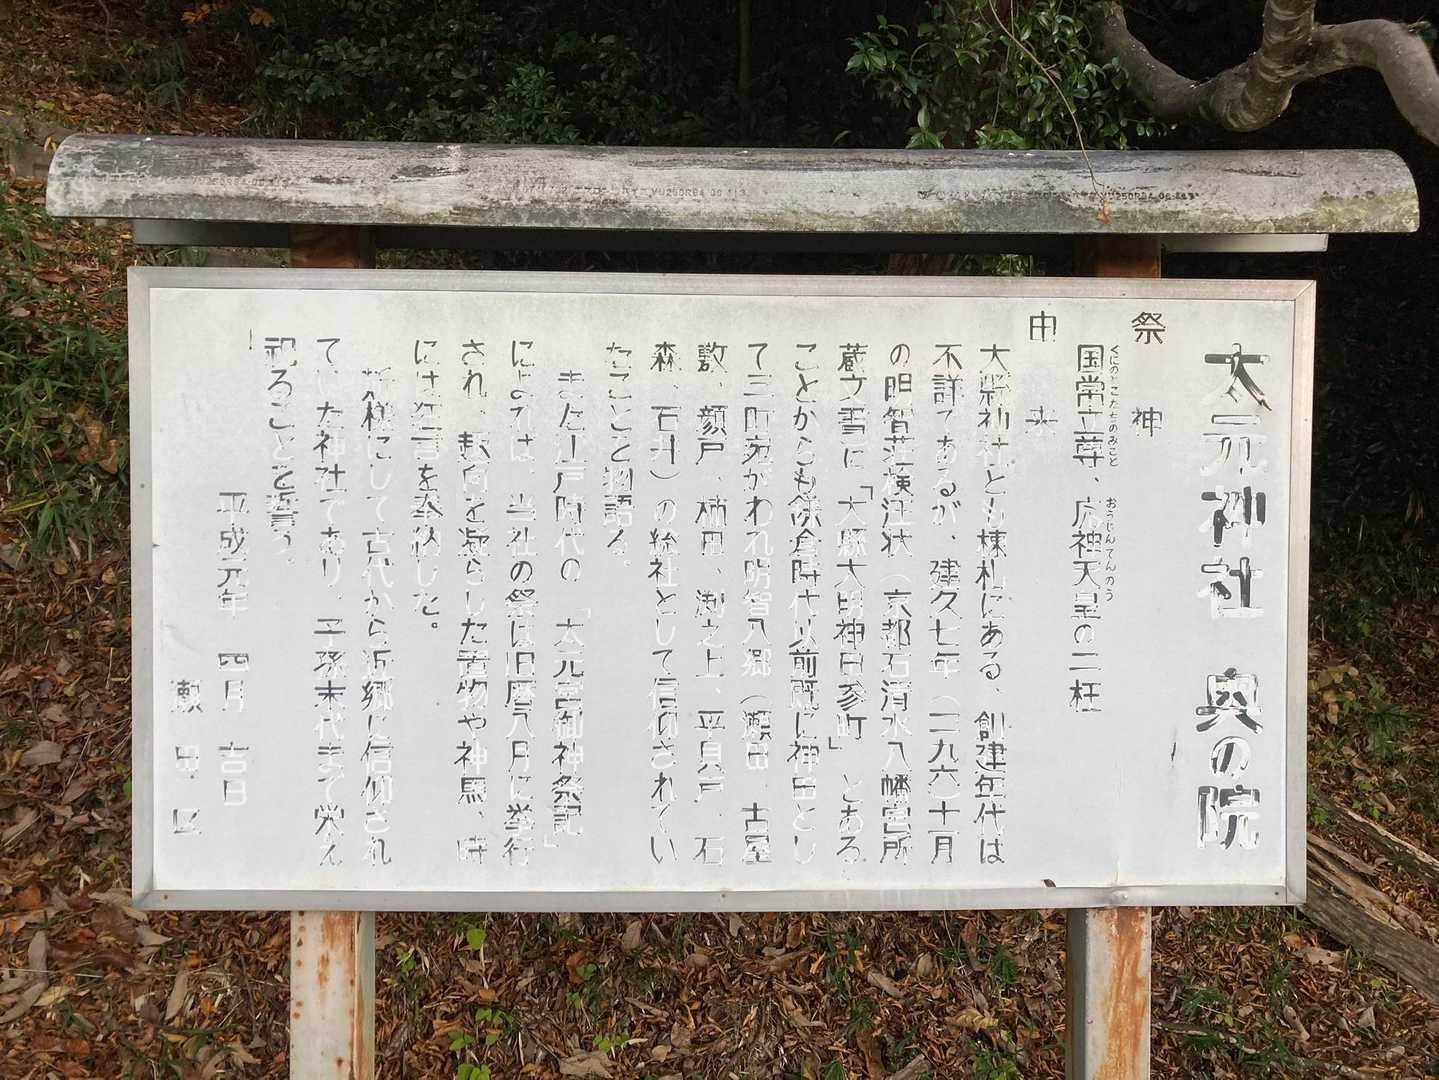 太元神社 奥の院
祭神
国常立尊、応神天皇の二柱
くにのとこたちのみこと おうじんてんのう
由来
大縣神社とも棟札にある、創建年代は
不詳であるが、建久七年（一一九六）十一月
の明智荘検注状（京都石清水八幡宮所
蔵文書に「大縣大明神田参町」とある
ことからも鎌倉時代以前既に神田とし
て三町宛がわれ明智八郷（瀬田、古屋
敷、顔戸、柿田、渕之上、平貝戸、石
森、石井）の総社として信仰されてい
たことを物語る。
また江戸時代の「太元宮御神祭記」
によれば、当社の祭は旧暦八月に挙行
され、趣向を凝らした置物や神馬、時
には狂言を奉納した。
様にして古代から近郷に信仰され
ていた神社であり、子孫末代まで栄え
祀ることを誓う。
平成元年 四月 吉日
瀬田区